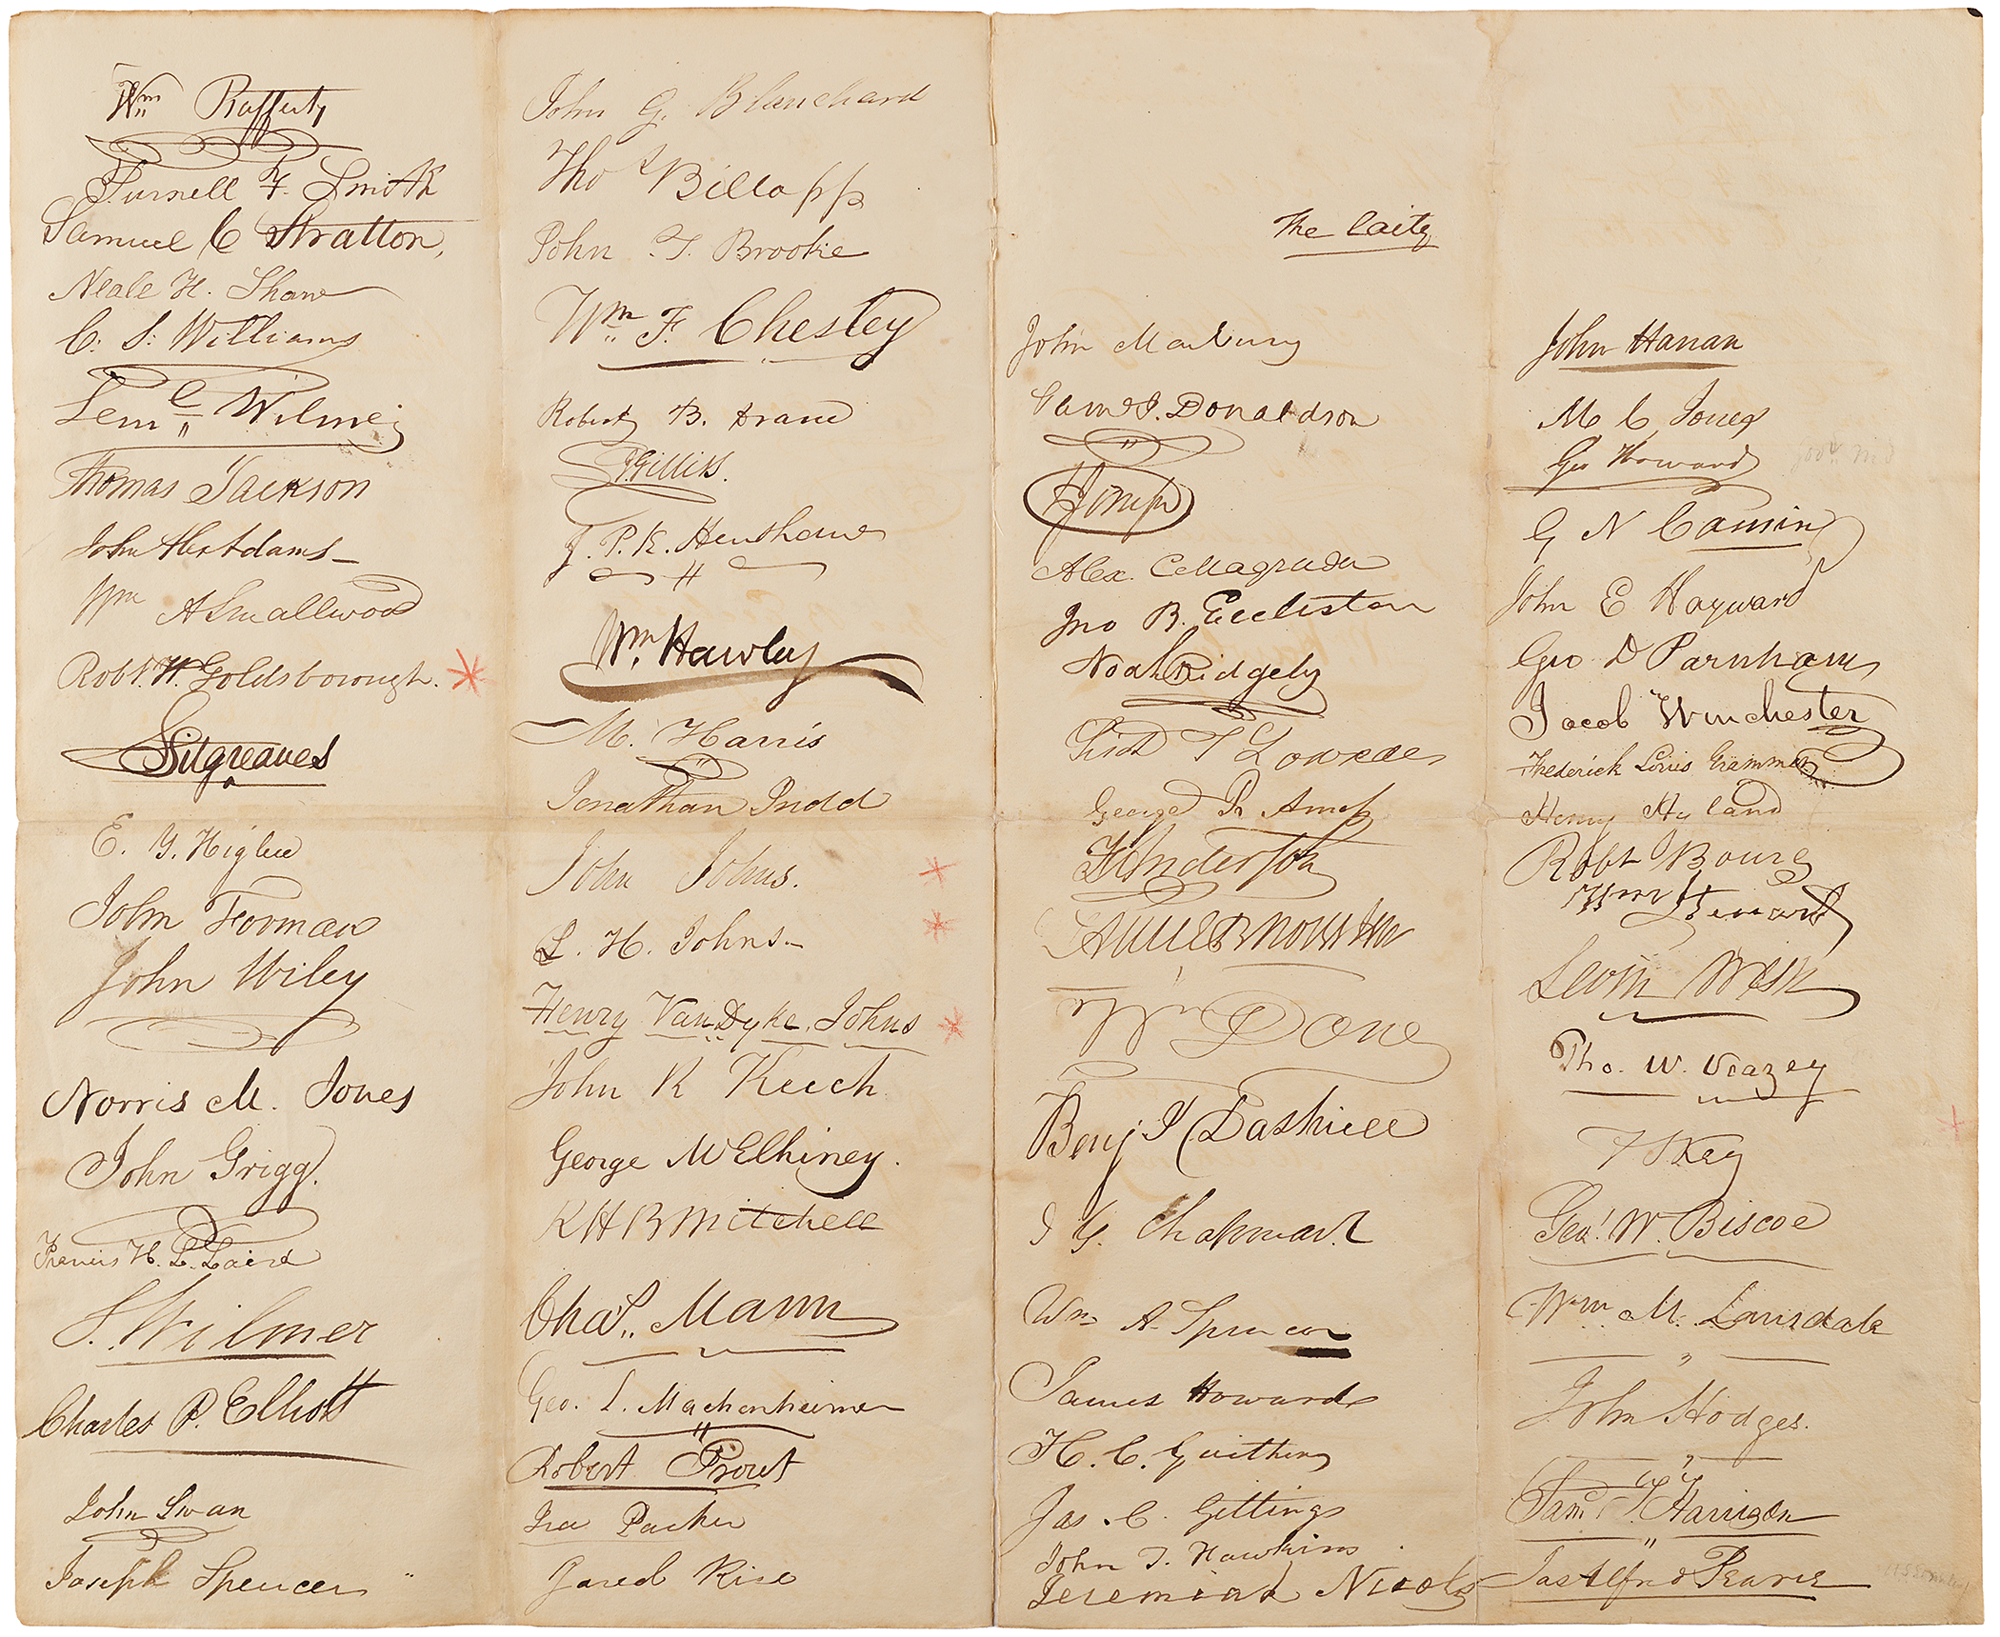 Wm Rafferty
Purnell F. Smith
Samuel C Stratton,
Neale H. Shaw
C. S. Williams
Leml Wilmer
Thomas Jackson
John Alex Adams
Wm A Smallwood
Robt. W. Goldsborough.
Sitgreaves
E. Y. Higbee
John Forman
John Wiley
Norris M. Jones
John Grigg.
Francis H. L. Laird
S. Wilmer
Charles P. Elliott
John Swan
Joseph Spencer
John G. Blanchard
Thos Billopp
John T. Brooke
Wm F. Chesley
Robert B. Drane
Gilliss.
J. P. K. Henshaw
Wm. Hawley
M. Harris
Jonathan Judd
John Johns.
L. H. Johns
Henry Van Dyke Johns
John R Keech
George McElhiney.
R H B Mitchell
Chas. Mann
Geo. L. Machenheimer
Robert Prout
Ira Parker
Jared Rice
The Laity
John Marbury
Saml J. Donaldson
Alex. C Magruder
Jno B. Eccleston
Noah Ridgely
T Lowndes
George R Amos
Wm Done
Benj I Dashiell
J G. Chapman
Wm A. Spencer
James Howard
H. C. Gaither
Jas. C. Gittings
John T. Hawkins
Jeremiah Nicols
John Hanan
M C Jones
Geo Howard
G N Causin
John E Hayward
Geo D Parnham
Jacob Winchester
Frederick Louis Grammer
Henry Hyland
Robt Bowie
Wm H
Levin
Tho. W. Veazey
F S Key
Geo. W. Biscoe
Wm. M. Lansdale
John Hodges.
Saml T. Harrison
Jas Alfred Pearce